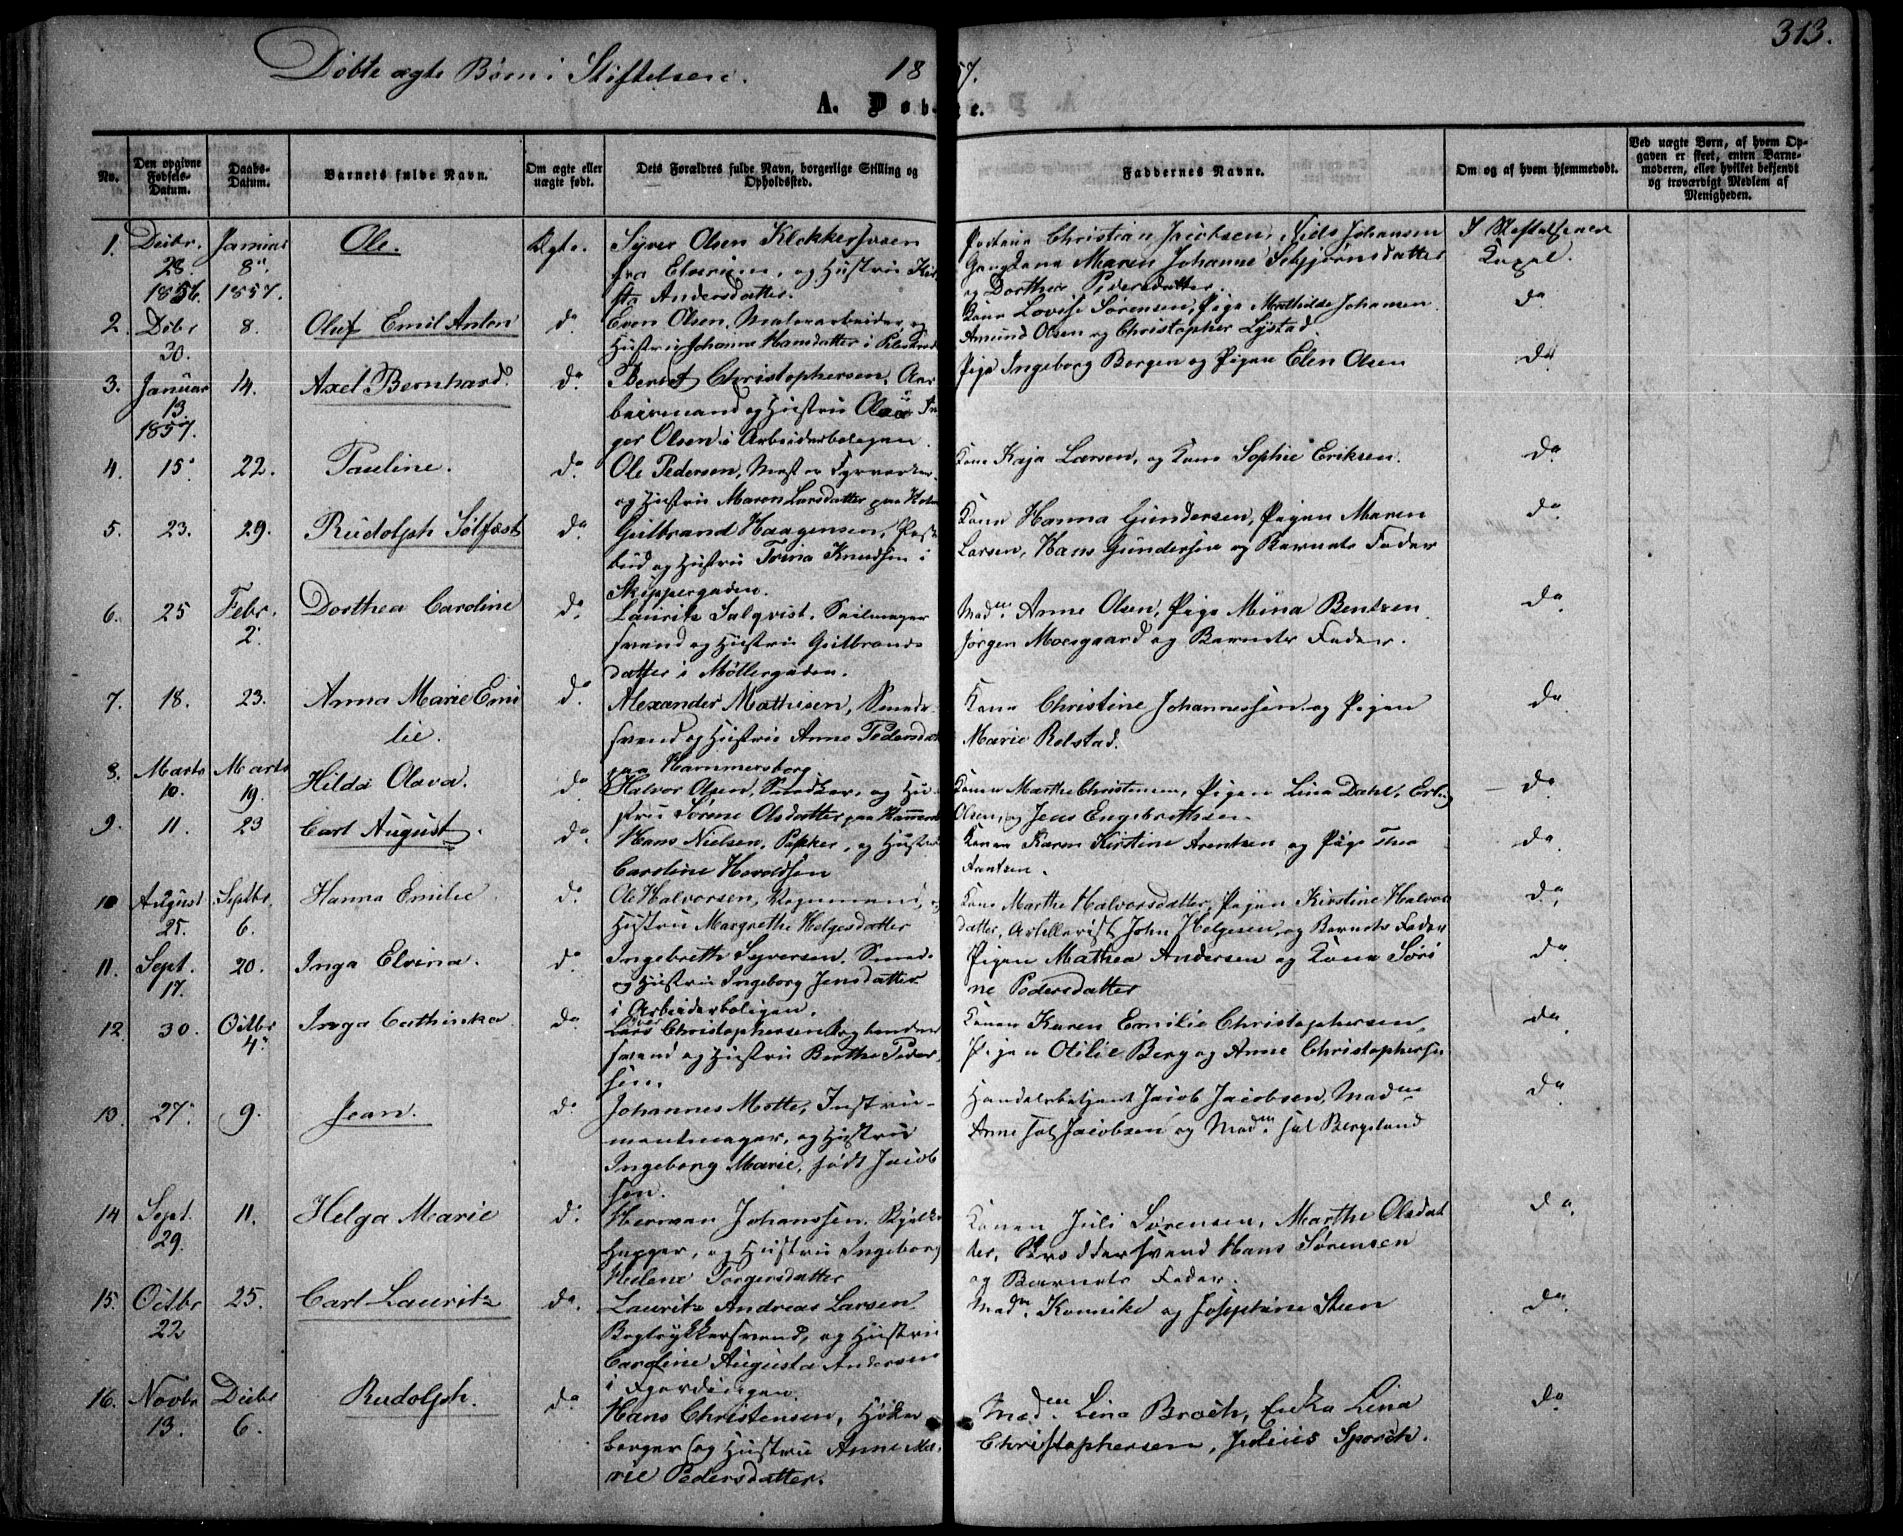 313.
Døbte ægte Børn i Stiftelsen. 1857.
A. Døbte.
No. Den opgivne Fødsels-Datum. Daabs-Datum. Barnets fulde Navn. Om ægte eller uægte født. Dets Forældres fulde Navn, borgerlige Stilling og Opholdssted. Faddernes Navne. Om og af hvem hjemmedøbt. Ved uægte Børn, af hvem Opgaven er skeet, enten Barnemoderen, eller hvilket bekjendt og troværdigt Medlem af Menigheden.
1. Decbr. Januar Ole. Ægte. Syver Olsen Christian Jacobsen, Niels Johansen I Stiftelsens
28. 8. fra Elverum, og Hustru Maren Johanne Schjørnsdatter Kapel.
1856. 1857. Andersdatter. og Dorthea Pedersdatter.
2. Decbr 8. Oluf Emil Anton do Even Olsen, og Kone Lovise Sørensen, Pige Mathilde Johansen do
30. Hustru Johanne Hansdatter i Amund Olsen og Christopher Lystad.
3. Januar 14. Axel Bernhard. do Bernt Christophersen, Ar- Pige Ingeborg Bergen og Pigen Elen Olsen do
13. og Hustru
1857. Olsen i Arbeiderboligen.
4. 15. 22. Pauline. do Ole Pedersen, Kone Kaja Larsen, og Kone Sophie Eriksen. do
og Hustru Maren Larsdatter paa
5. 23. 29. Rudolph Sølfæst do Gulbrand Haagensen, Post- Kone Hanna Gundersen, Pigen Maren do
bud og Hustru Trina Knudsen i Larsen, Hans Gundersen og Barnets Fader
Skippergaden.
6. 25 Febr. Dorthea Caroline do Lauritz Salqvist, Seilmager Madm. Anne Olsen, Pige Mina Bentzen do
2. svend og Hustru Gulbrands- Jørgen Morsgaard og Barnets Fader.
datter i Møllergaden.
7. 18. 23. Anna Marie Emi do Alexander Mathisen, Smede- Kone Christine Johannessen og Pigen do
lie. svend og Hustru Anne Pedersdat Marie Rolstad.
paa Hammersborg
8. Marts Marts Hilda Olava. do Halvor Olsen, Snedker, og Hu- Konen Marthe Christensen, Pigen Lina Dahl, do
10. 19. stru Sørine Olsdatter paa Olsen, og Jens Engebrethsen.
9. 11. 23 Carl August. do Hans Nielsen, og Hustru Konen Karen Kirstine Arentzen og Pige Thea do
Caroline Haroldsen Arentzen.
10 August Septbr. Hanna Emilie do Ole Halvorsen, Vognmand, og Kone Marthe Halvorsdatter, Pigen Kirstine Halvors do
25. 6. Hustru Margrethe Helgesdatter datter, Artillerist John Helgesen, og Barnets Fader
11. Sept. 20. Inga Elvina. do Ingebreth Syversen, Smed Pigen Mathea Andersen og Kone Søri do
17. og Hustru Ingeborg Jensdatter ne Pedersdatter
i Arbeiderboligen.
12. 30. Octbr Inga Cathinka do Christophersen Konen Karen Emilie Christophersen, do
4. svend og Hustru Berthe Peder- Pigen Otilie Berg og Anne Christophersen
sen.
13. 27. 9. Jean. do Johannes Motte, Instru- Handelsbetjent Jacob Jacobsen, Madm. do
mentmager, og Hustru Anne Sal Jacobsen og Madm. Sal Bergsland
Ingeborg Marie, født Jacob
sen.
14 Sept. 11. Helga Marie do Herman Johanssen, Konen Juli Sørensen, Marthe Olsdat do.
29. hugger, og Hustru Ingeborg ter, svend Hans Sørensen
Helene Torgersdatter og Barnets Fader.
15. Octbr 25. Carl Lauritz do. Lauritz Andreas Larsen Madm. og Josephine Steen do
22 Bogtrykkersvend, og Hustru
Caroline Augusta Andersen
i Fjerdingen.
16. Novbr Decbr Rudolph. do Hans Christensen, Høker Madm. Lina Broch, Enke Lina do
13. 6. borger og Hustru Anne Ma- Christophersen, Julius
rie Pedersdatter.